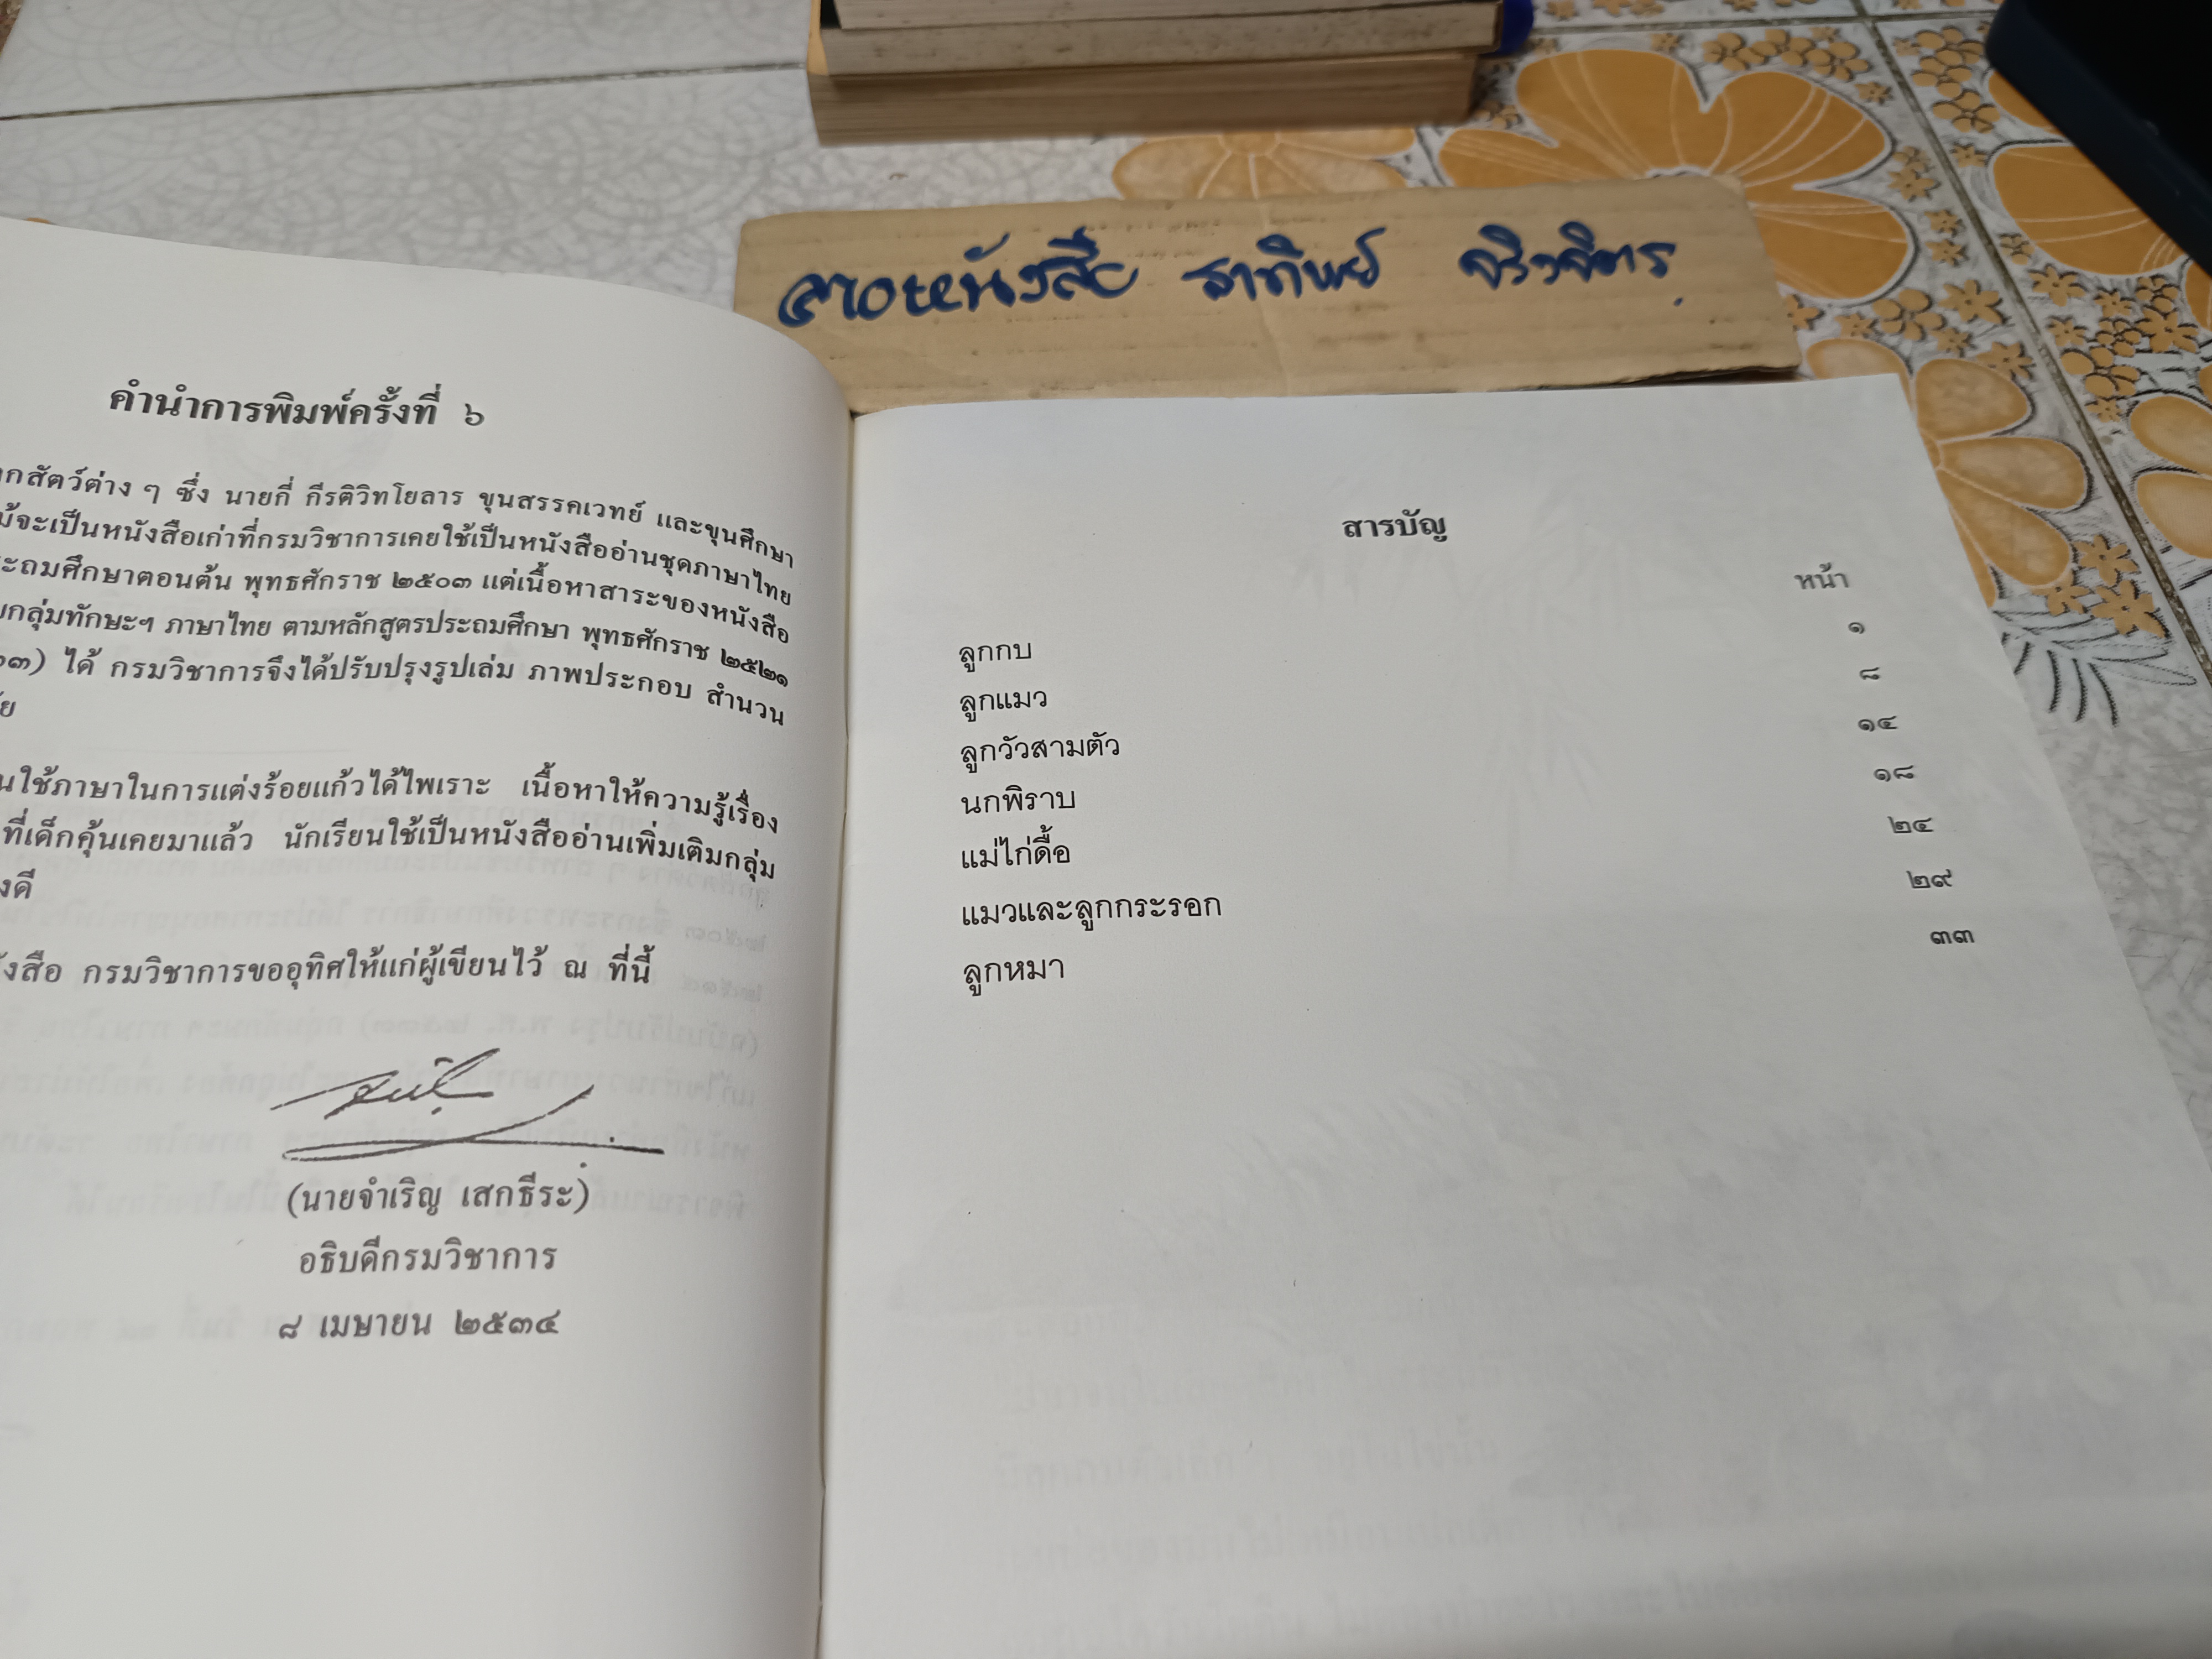 ขายหนังสือ ธาทิพย์ จริงจิตร
คำนำการพิมพ์ครั้งที่ ๖
กสัตว์ต่าง ๆ ซึ่ง นายกี่ กีรติวิทโยลาร ขุนสรรคเวทย์ และขุนศึกษา
จะเป็นหนังสือเก่าที่กรมวิชาการเคยใช้เป็นหนังสืออ่านชุดภาษาไทย
ะถมศึกษาตอนต้น พุทธศักราช ๒๕๐๓ แต่เนื้อหาสาระของหนังสือ
กลุ่มทักษะฯ ภาษาไทย ตามหลักสูตรประถมศึกษา พุทธศักราช ๒๕๒๑
๓) ได้ กรมวิชาการจึงได้ปรับปรุงรูปเล่ม ภาพประกอบ สำนวน
ย
นใช้ภาษาในการแต่งร้อยแก้วได้ไพเราะ เนื้อหาให้ความรู้เรื่อง
ที่เด็กคุ้นเคยมาแล้ว นักเรียนใช้เป็นหนังสืออ่านเพิ่มเติมกลุ่ม
งดี
ังสือ กรมวิชาการขออุทิศให้แก่ผู้เขียนไว้ ณ ที่นี้
(นายจำเริญ เสกธีระ)
อธิบดีกรมวิชาการ
๘ เมษายน ๒๕๓๔
สารบัญ
หน้า
ลูกกบ ๑
ลูกแมว ๘
ลูกวัวสามตัว ๑๔
นกพิราบ ๑๘
แม่ไก่ดื้อ ๒๔
แมวและลูกกระรอก ๒๙
ลูกหมา ๓๓